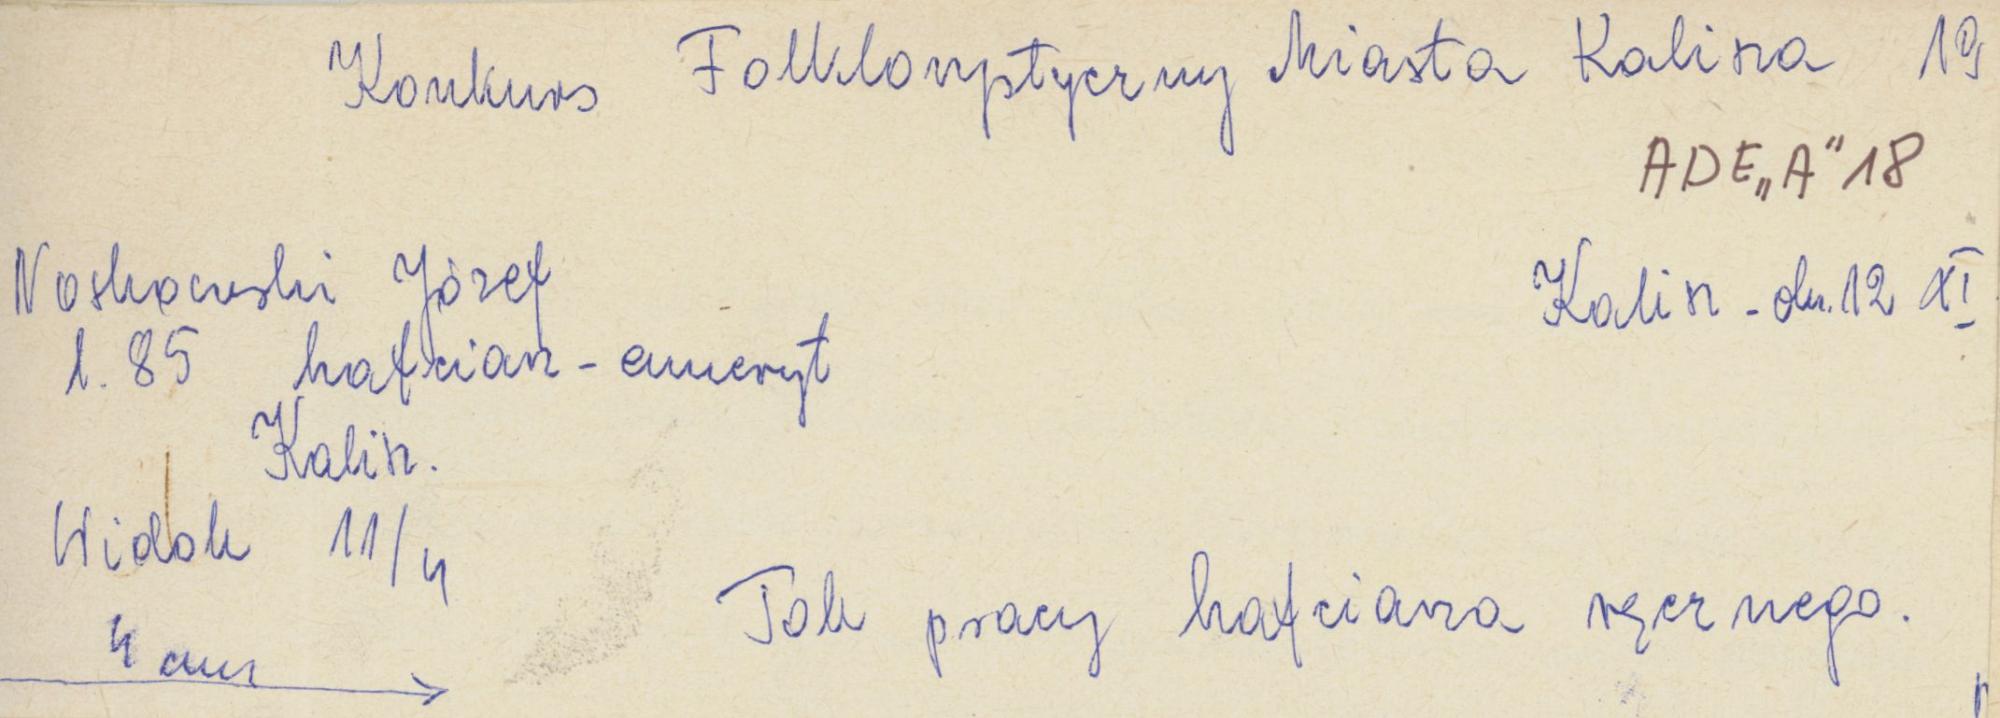 Konkurs Folklorystyczny Miasta Kalisza 19
ADE„A"18
Noskowski Józef Kalisz - dn. 12 XI
l. 85 hafciarz - emeryt
Kalisz.
Widok 11/4
Tok pracy hafciarza ręcznego.
4 cm